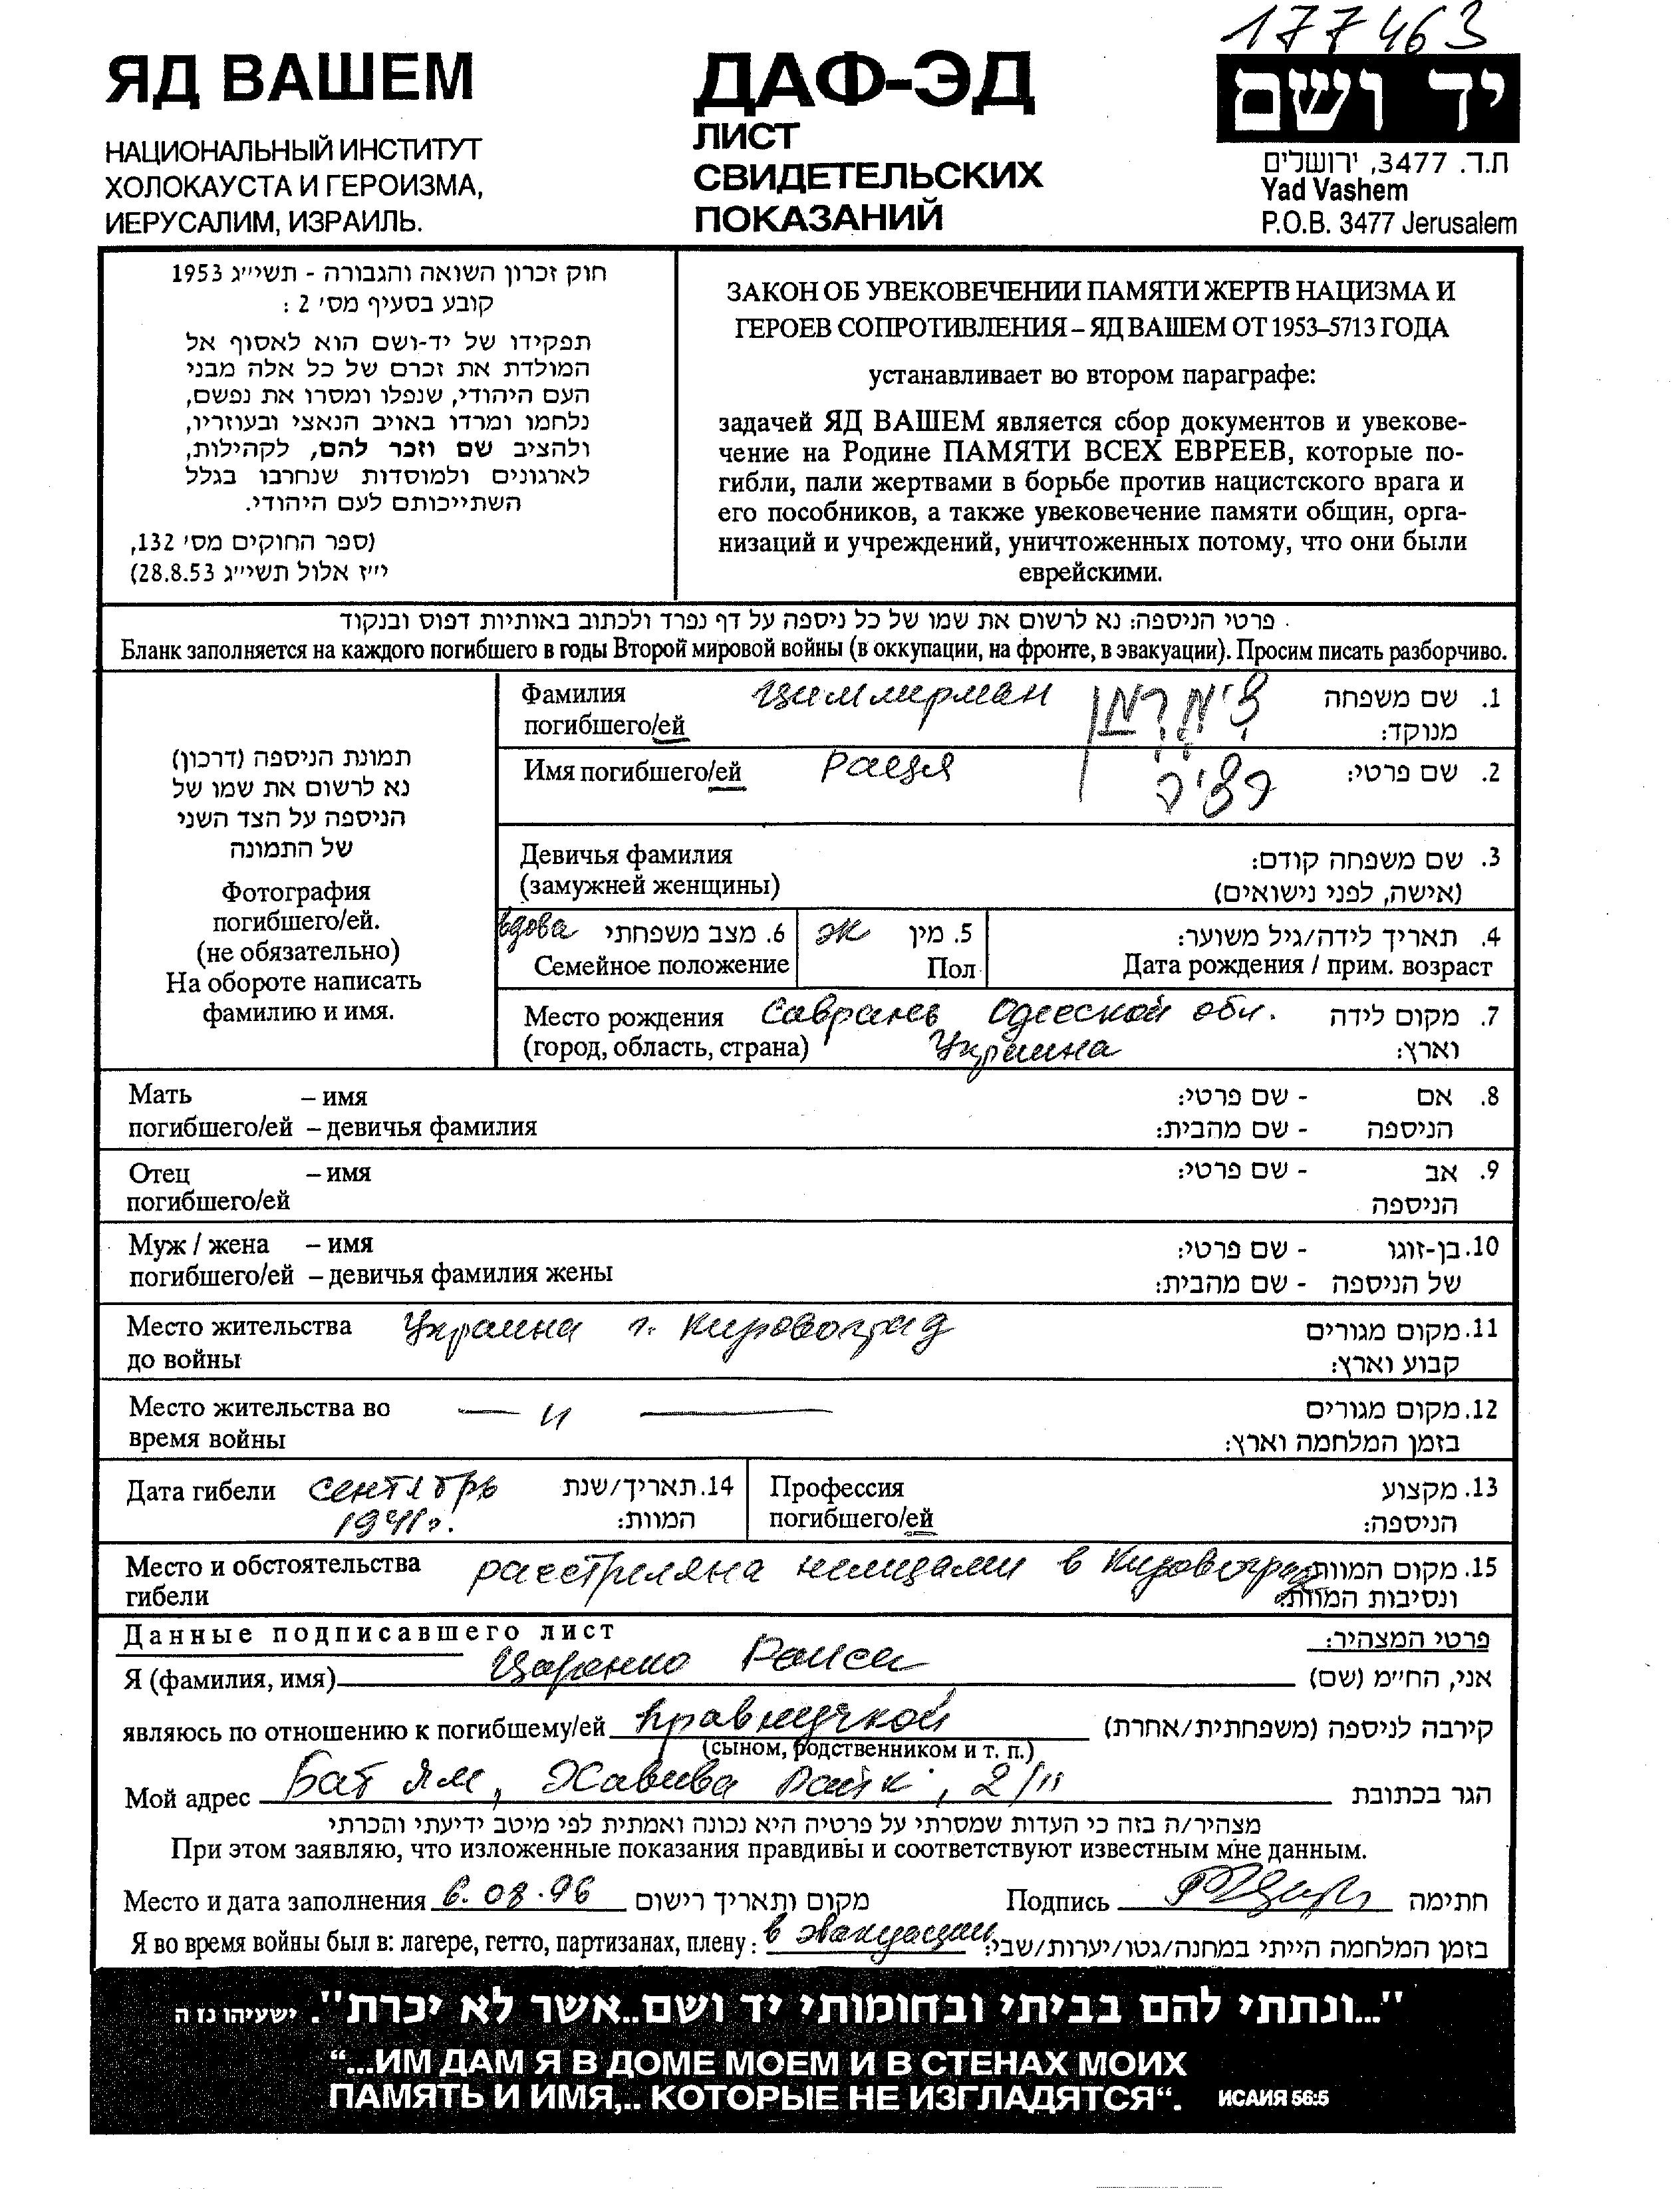 177463
ЯД ВАШЕМ
НАЦИОНАЛЬНЫЙ ИНСТИТУТ
ХОЛОКАУСТА И ГЕРОИЗМА,
ИЕРУСАЛИМ, ИЗРАИЛЬ.
ДАФ-ЭД
ЛИСТ
СВИДЕТЕЛЬСКИХ
ПОКАЗАНИЙ
יד ושם
ת.ד. 3477, ירושלים
Yad Vashem
P.O.B. 3477 Jerusalem
חוק זכרון השואה והגבורה - תשי״ג 1953
קובע בסעיף מס׳ 2 :
תפקידו של יד-ושם הוא לאסוף אל
המולדת את זכרם של כל אלה מבני
העם היהודי, שנפלו ומסרו את נפשם,
נלחמו ומרדו באויב הנאצי ובעוזריו,
ולהציב שם וזכר להם, לקהילות,
לארגונים ולמוסדות שנחרבו בגלל
השתייכותם לעם היהודי.
(ספר החוקים מס׳ 132,
י״ז אלול תשי״ג 28.8.53)
ЗАКОН ОБ УВЕКОВЕЧЕНИИ ПАМЯТИ ЖЕРТВ НАЦИЗМА И
ГЕРОЕВ СОПРОТИВЛЕНИЯ – ЯД ВАШЕМ ОТ 1953–5713 ГОДА
устанавливает во втором параграфе:
задачей ЯД ВАШЕМ является сбор документов и увекове-
чение на Родине ПАМЯТИ ВСЕХ ЕВРЕЕВ, которые по-
гибли, пали жертвами в борьбе против нацистского врага и
его пособников, а также увековечение памяти общин, орга-
низаций и учреждений, уничтоженных потому, что они были
еврейскими.
פרטי הניספה: נא לרשום את שמו של כל ניספה על דף נפרד ולכתוב באותיות דפוס ובנקוד
Бланк заполняется на каждого погибшего в годы Второй мировой войны (в оккупации, на фронте, в эвакуации). Просим писать разборчиво.
תמונת הניספה (דרכון)
נא לרשום את שמו של
הניספה על הצד השני
של התמונה
Фотография
погибшего/ей.
(не обязательно)
На обороте написать
фамилию и имя.
Фамилия Циммерман צימרמן 1. שם משפחה
погибшего/ей מנוקד:
Имя погибшего/ей Рацея רציה 2. שם פרטי:
Девичья фамилия 3. שם משפחה קודם:
(замужней женщины) (אישה, לפני נישואים)
вдова 6. מצב משפחתי ж 5. מין 4. תאריך לידה/גיל משוער:
Семейное положение Пол Дата рождения / прим. возраст
Место рождения Саврань Одесской обл. 7. מקום לידה
(город, область, страна) Украина וארץ:
Мать – имя - שם פרטי: 8. אם
погибшего/ей – девичья фамилия - שם מהבית: הניספה
Отец – имя - שם פרטי: 9. אב
погибшего/ей הניספה
Муж / жена – имя - שם פרטי: 10. בן-זוגו
погибшего/ей – девичья фамилия жены - שם מהבית: של הניספה
Место жительства Украина г. Кировоград 11. מקום מגורים
до войны קבוע וארץ:
Место жительства во — и — 12. מקום מגורים
время войны בזמן המלחמה וארץ:
Дата гибели сентябрь 14. תאריך/שנת Профессия 13. מקצוע
1941г. המוות: погибшего/ей הניספה:
Место и обстоятельства расстреляна немцами в Кировограде 15. מקום המוות
гибели ונסיבות המוות:
Данные подписавшего лист פרטי המצהיר:
Я (фамилия, имя) Царенко Раиса אני, החי״מ (שם)
являюсь по отношению к погибшему/ей правнучкой קירבה לניספה (משפחתית/אחרת)
(сыном, родственником и т. п.)
Мой адрес Бат Ям, Хавива Райк, 2/11 הגר בכתובת
מצהיר/ה בזה כי העדות שמסרתי על פרטיה היא נכונה ואמתית לפי מיטב ידיעתי והכרתי
При этом заявляю, что изложенные показания правдивы и соответствуют известным мне данным.
Место и дата заполнения 6.08.96 מקום ותאריך רישום Подпись חתימה
Я во время войны был в: лагере, гетто, партизанах, плену: в эвакуации בזמן המלחמה הייתי במחנה/גטו/יערות/שבי:
"...ונתתי להם בביתי ובחומותי יד ושם..אשר לא יכרת". ישעיהו נז ה
“...ИМ ДАМ Я В ДОМЕ МОЕМ И В СТЕНАХ МОИХ
ПАМЯТЬ И ИМЯ,.. КОТОРЫЕ НЕ ИЗГЛАДЯТСЯ“. ИСАИЯ 56:5